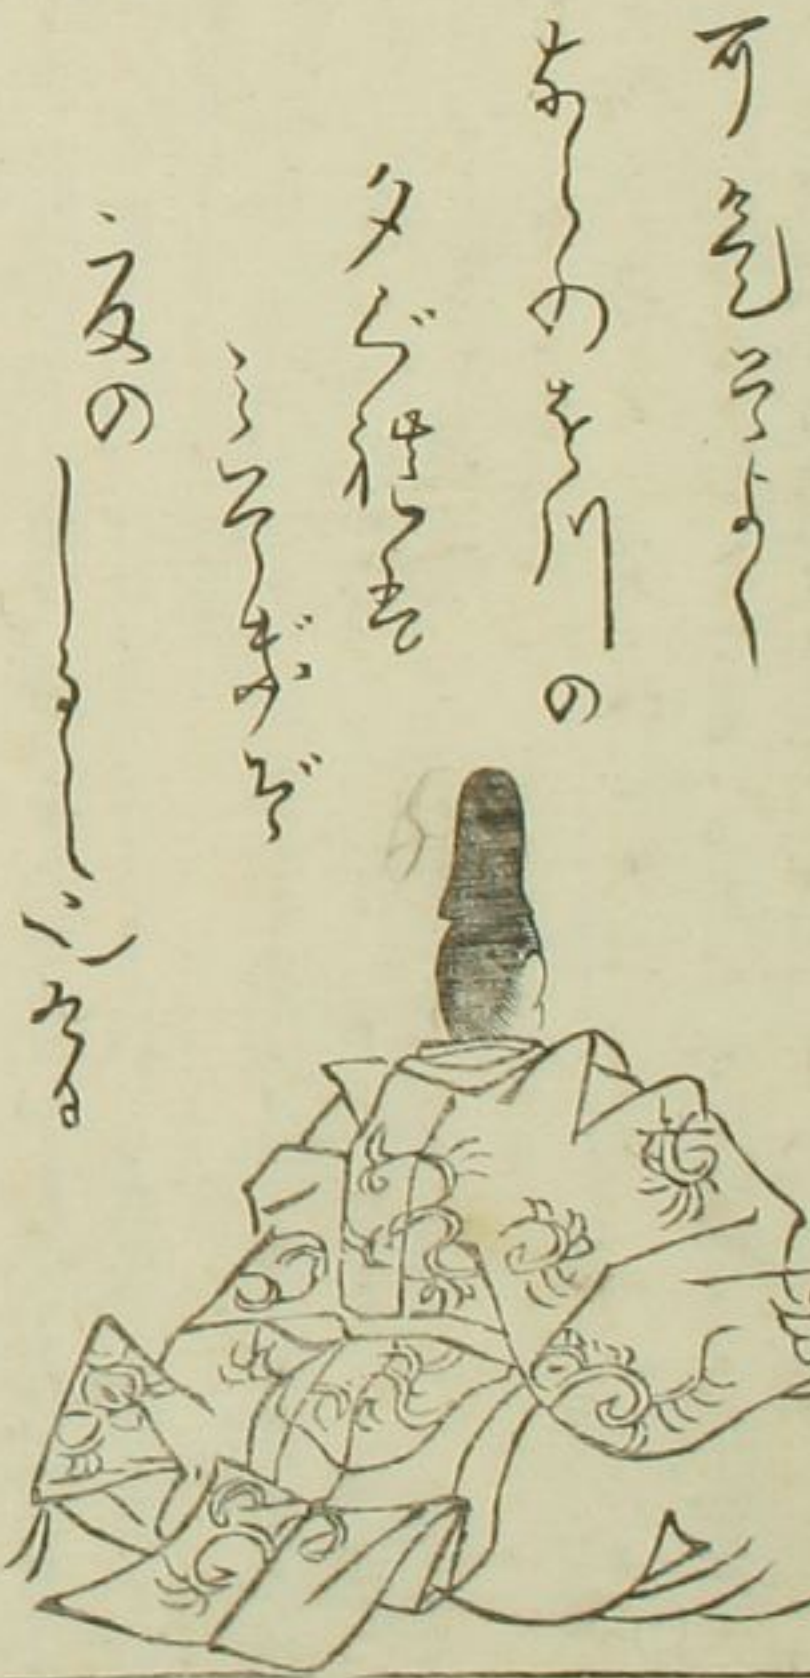 可勢そよく
ならのを川の
夕ぐ禮は
みそぎぞ
夏の
しるしなりける